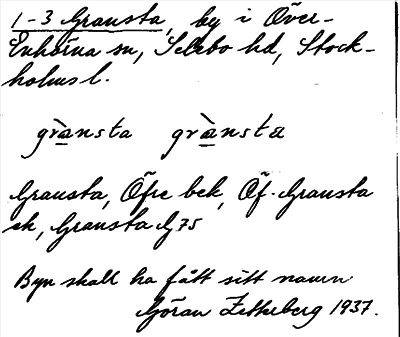 1-3 Gransta, by i Över-
Enhörna sn, Selebo hd, Stock-
holms l.
grànsta grànsta
Gransta, Öfre bek, Öf. Gransta
ek, Gransta G 75
Byn skall ha fått sitt namn
Göran Zetterberg 1937.